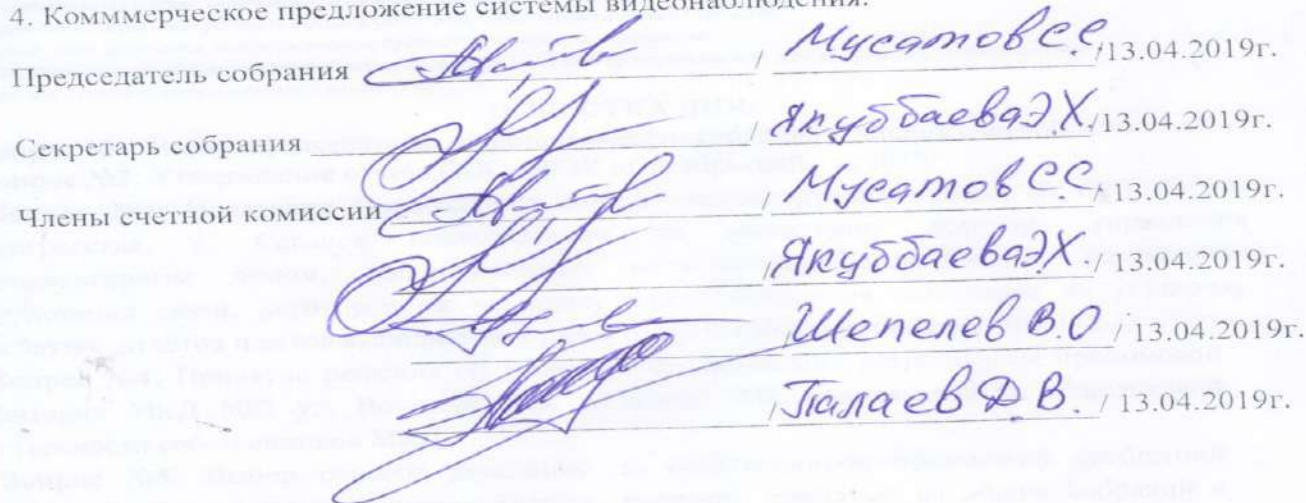 4. Комммерческое предложение системы видеонаблюдения.
Председатель собрания / Мусатов С С /13.04.2019г.
Секретарь собрания / Якуббаева Э.Х. /13.04.2019г.
Члены счетной комиссии / Мусатов С С /13.04.2019г.
/ Якуббаева Э.Х. / 13.04.2019г.
/ Шепелев В.О / 13.04.2019г.
/ Палаев Д.В. / 13.04.2019г.